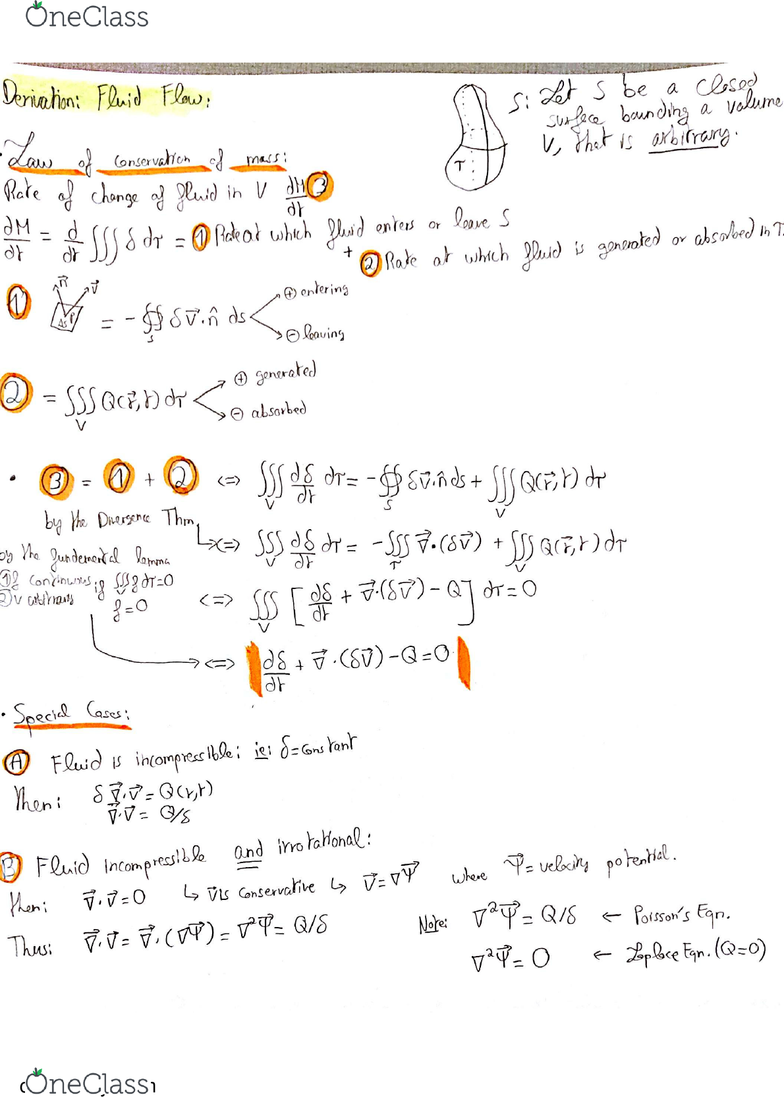 OneClass
Derivation: Fluid Flow:
S: Let S be a closed
surface bounding a volume
V, that is arbitrary.
T
· Law of conservation of mass:
Rate of change of fluid in V dM/dt ③
∂M/dt = d/dt ∭ δ dτ = ① Rate at which fluid enters or leave S
+ ② Rate at which fluid is generated or absorbed in T.
① n⃗ v⃗ ΔS P = - ∯_S δ v⃗·n̂ ds
⊕ entering
⊖ leaving
② = ∭_V Q(r⃗,t) dτ
⊕ generated
⊖ absorbed
· ③ = ① + ② <=> ∭_V dδ/dt dτ = - ∯_S δv⃗·n̂ ds + ∭_V Q(r⃗,t) dτ
by the Divergence Thm, <=> ∭_V dδ/dt dτ = - ∭_τ ∇⃗·(δv⃗) + ∭_V Q(r⃗,t) dτ
by the fundemental lemma
① f continuous if ∭f dτ=0
② V arbitrary f=0
<=> ∭_V [dδ/dt + ∇⃗·(δv⃗) - Q] dτ = 0
<=> dδ/dt + ∇⃗·(δv⃗) - Q = 0
· Special Cases:
Ⓐ Fluid is incompressible; ie: δ=constant
Then: δ ∇⃗·v⃗ = Q(r,t)
∇⃗·v⃗ = Q/δ
Ⓑ Fluid incompressible and irrotational:
then: ∇⃗·v⃗=0 ↳ v⃗ is conservative ↳ v⃗=∇Ψ⃗ where Ψ⃗ = velocity potential.
Thus: ∇⃗·v⃗ = ∇⃗·(∇Ψ⃗) = ∇²Ψ⃗ = Q/δ
Note: ∇²Ψ⃗ = Q/δ ← Poisson's Eqn.
∇²Ψ⃗ = 0 ← Laplace Eqn. (Q=0)
OneClass